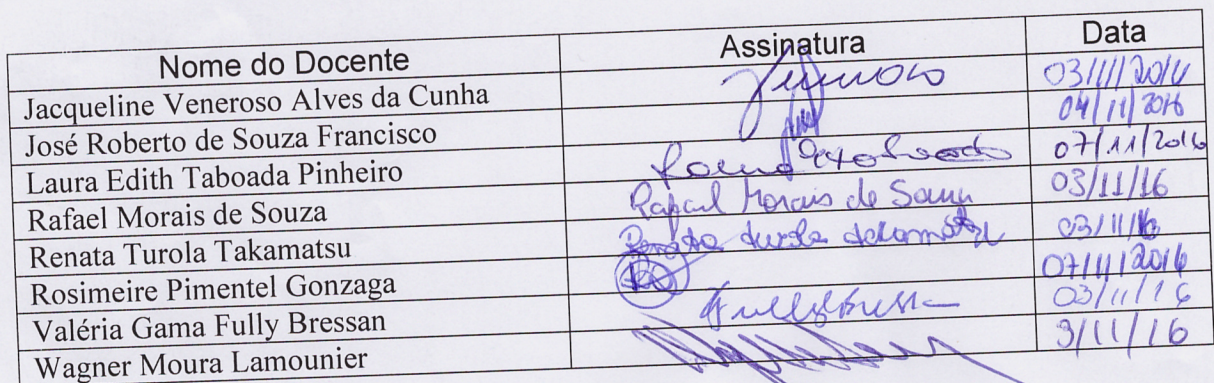 Nome do Docente Assinatura Data
Jacqueline Veneroso Alves da Cunha 03/11/2016
José Roberto de Souza Francisco 04/11/2016
Laura Edith Taboada Pinheiro 07/11/2016
Rafael Morais de Souza Rafael Morais de Souza 03/11/16
Renata Turola Takamatsu Renata Turola Takamatsu 03/11/16
Rosimeire Pimentel Gonzaga 07/11/2016
Valéria Gama Fully Bressan 03/11/16
Wagner Moura Lamounier 3/11/16